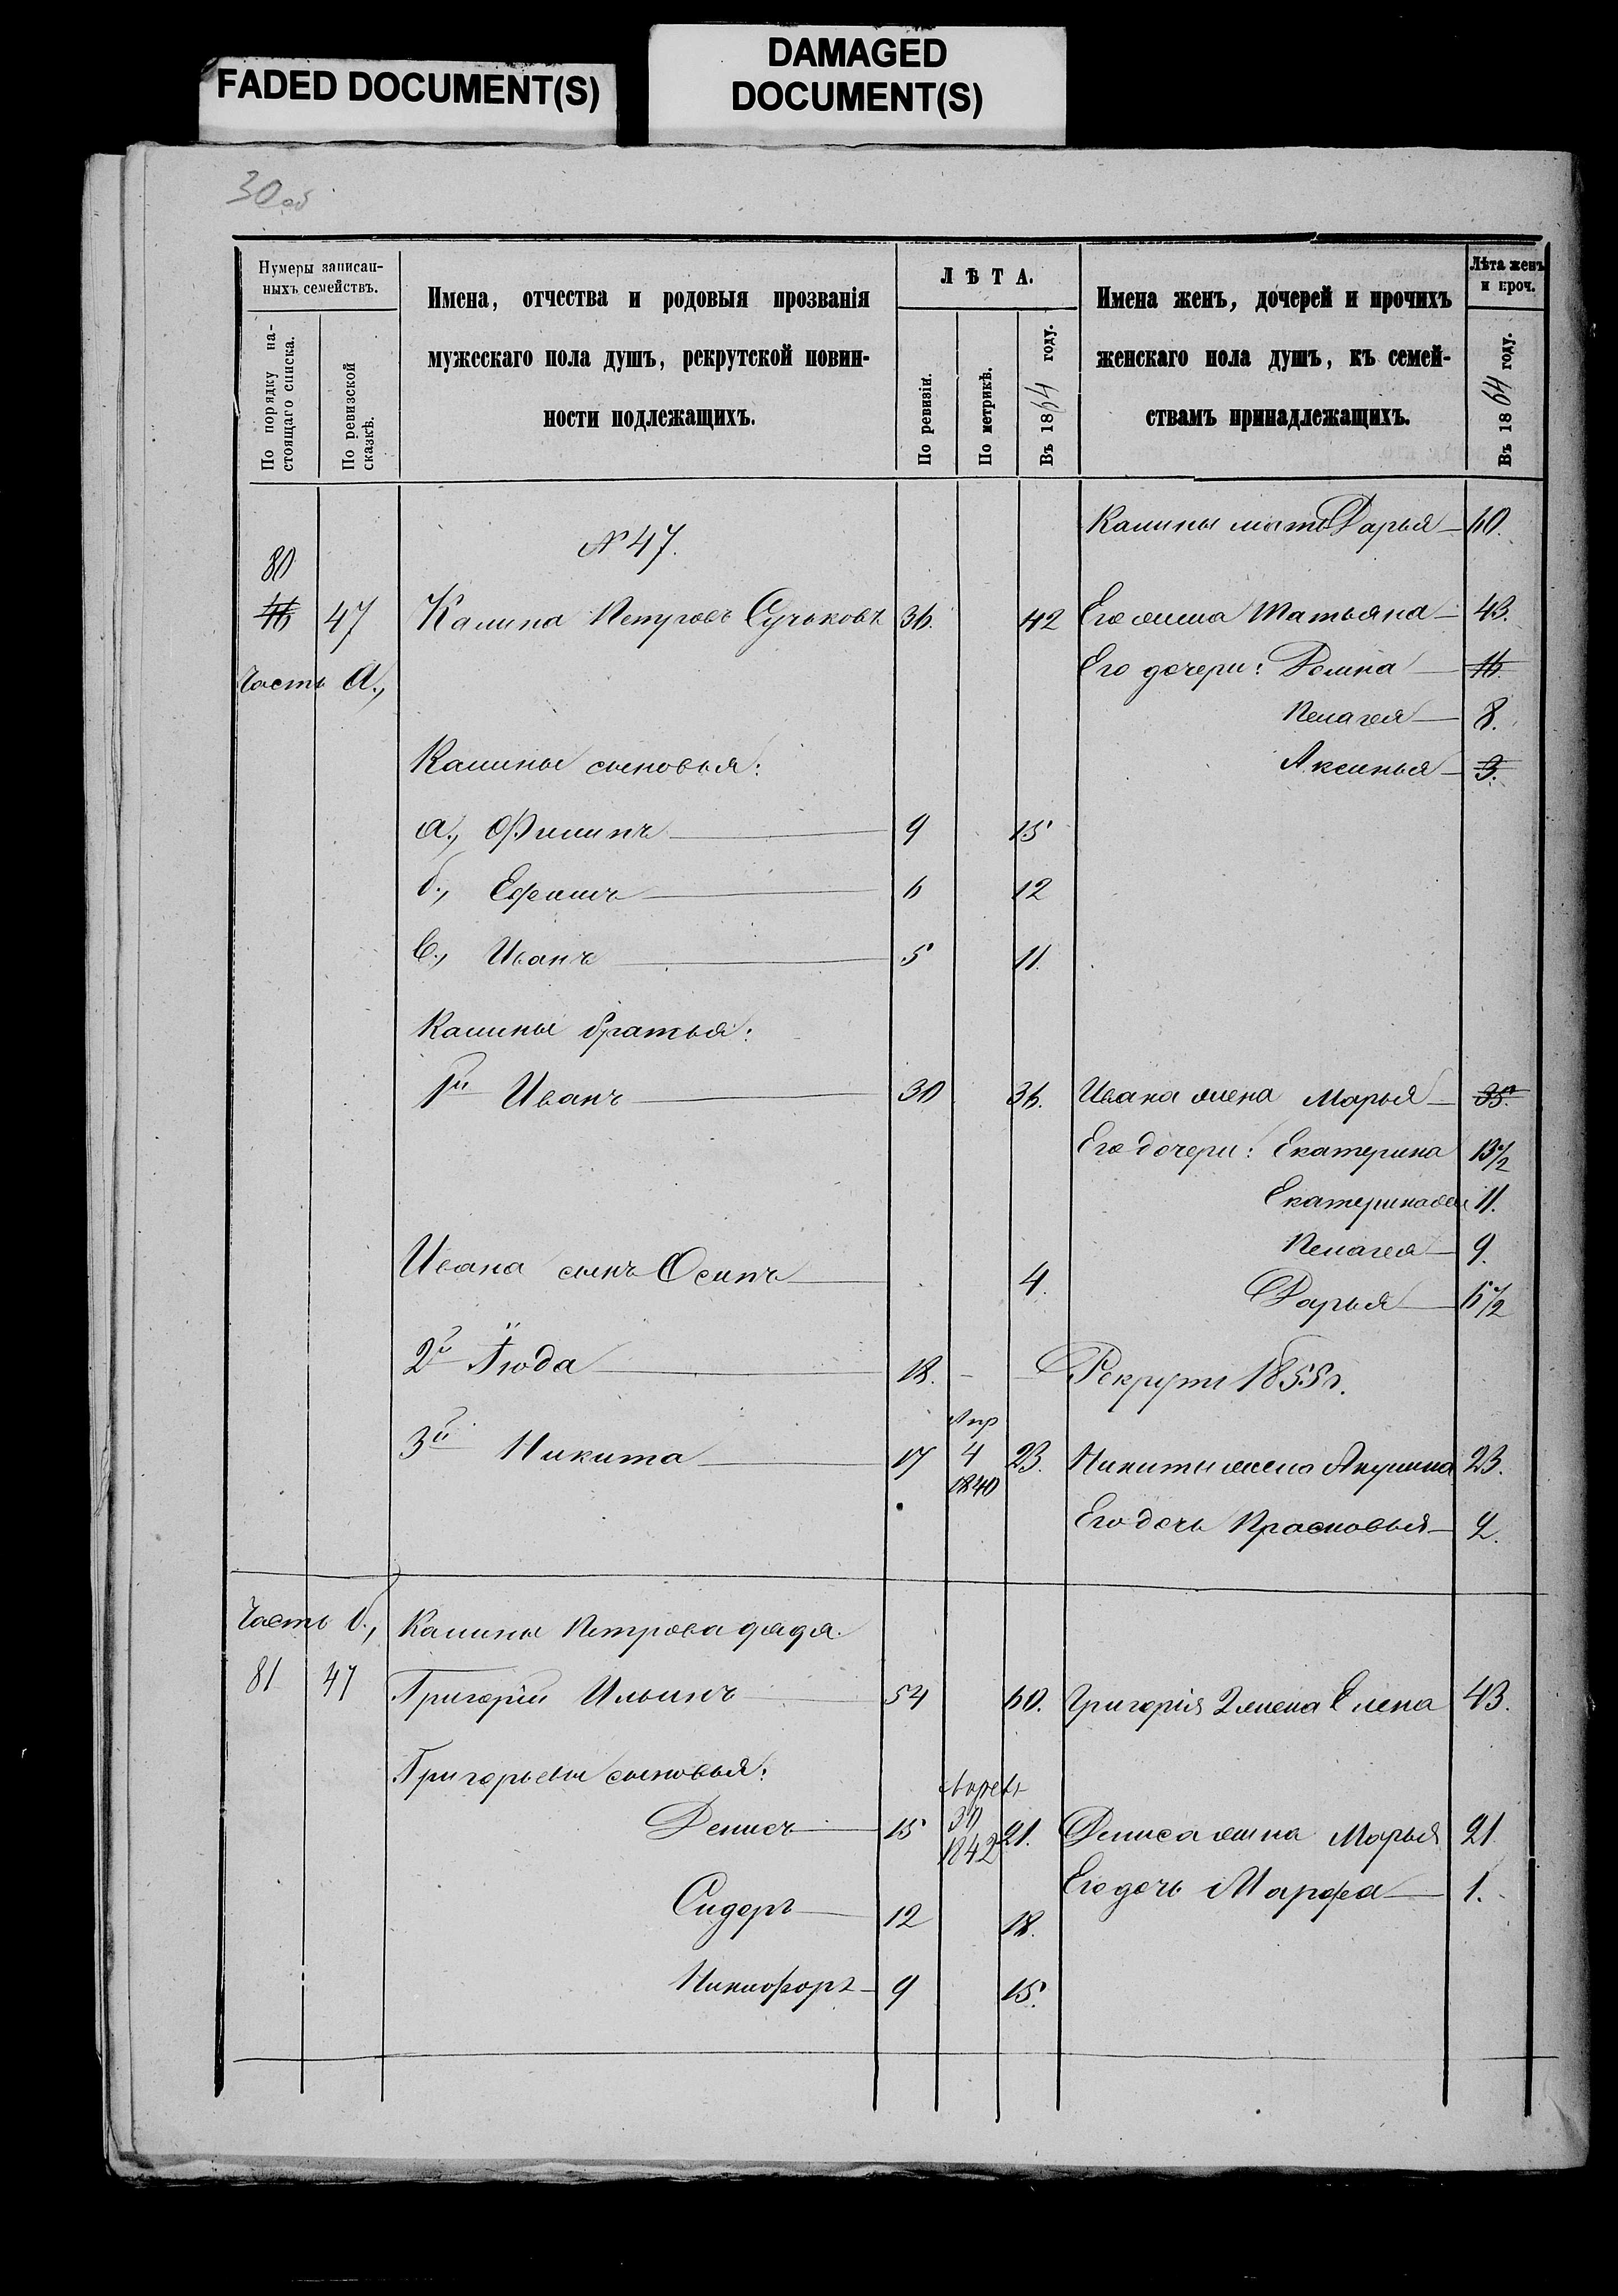 FADED DOCUMENT(S)
DAMAGED
DOCUMENT(S)
30 об
Нумеры записан-
ныхъ семействъ.
По порядку на-
стоящаго списка.
По ревизской
сказкѣ.
Имена, отчества и родовыя прозванія
мужескаго пола душъ, рекрутской повин-
ности подлежащихъ.
ЛѢТА.
По ревизіи.
По метрикѣ.
Въ 1864 году.
Имена женъ, дочерей и прочихъ
женскаго пола душъ, къ семей-
ствамъ принадлежащихъ.
Лѣта женъ
и проч.
Въ 1864 году.
Калины мать Дарья 60.
№ 47.
80
46 47 Калина Петровъ Сучковъ 36. 42 Его жена Татьяна 43.
Часть а., Его дочери: Домна 16.
Пелагея 8.
Калины сыновья: Аксинья 3.
а., Филипъ 9 15
б., Ефимъ 6 12
в., Иванъ 5 11.
Калины братья:
1й Иванъ 30 36. Ивана жена Марья 35.
Его дочери: Екатерина 13 1/2
Екатерина 11.
Пелагея 9.
Ивана сынъ Осипъ 4.
Дарья 6 1/2
2й Іюда 18. - Рекрутъ 1855 г.
3й Никита 17 Апр 4 1840 23. Никиты жена Акулина 23.
Его дочь Прасковья 2.
Часть б., Калины Петрова дядя
81 47 Григорій Ильинъ 54 60. Григорія 2 жена Елена 43.
Григорьевы сыновья:
Денисъ 15 Апрел 30 1842 21. Дениса жена Марья 21
Его дочь Марфа 1.
Сидоръ 12 18.
Никифоръ 9 15.